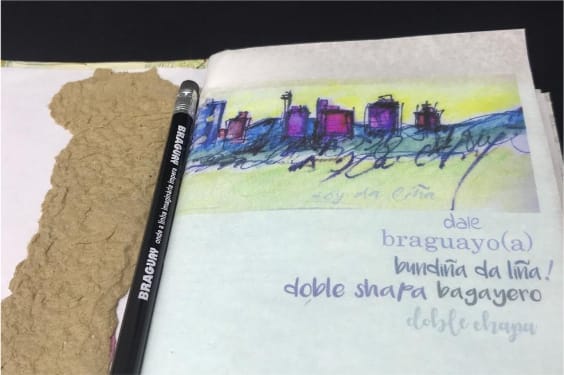 BRAGUAY
BRAGUAY onde a linha imaginária impera
soy da liña
dale
braguayo(a)
bundiña da liña!
doble shapa bagayero
doble chapa